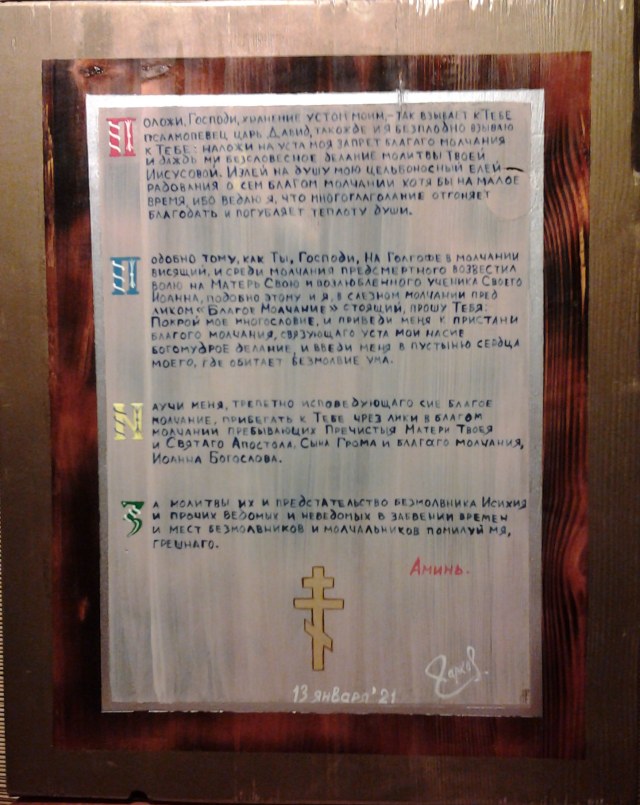 Положи, Господи, хранение устом моим,– так взывает к Тебе
псалмопевец царь Давид, такожде и я безплодно взываю
к Тебе: наложи на уста моя запрет благаго молчания
и даждь ми безсловесное делание молитвы Твоей
Иисусовой. Излей на душу мою цельбоносный елей
радования о сем благом молчании хотя бы на малое
время, ибо ведаю я, что многоглаголание отгоняет
благодать и погубляет теплоту души.
Подобно тому, как Ты, Господи, на Голгофе в молчании
висящий, и среди молчания предсмертного возвестил
волю на Матерь Свою и возлюбленного ученика Своего
Иоанна, подобно этому и я, в слезном молчании пред
ликом «Благое Молчание» стоящий, прошу Тебя:
Покрой мое многословие, и приведи меня к пристани
благого молчания, связующаго уста мои насие
богомудрое делание, и введи меня в пустыню сердца
моего, где обитает безмолвие ума.
Научи меня, трепетно исповедующаго сие благое
молчание, прибегать к Тебе чрез лики в благом
молчании пребывающих Пречистыя Матери Твоея
и Святаго Апостола, Сына Грома и благаго молчания,
Иоанна Богослова.
За молитвы их и предстательство безмолвника Исихия
и прочих ведомых и неведомых в забвении времен
и мест безмолвников и молчальников помилуй мя,
грешнаго.
Аминь.
13 января'21